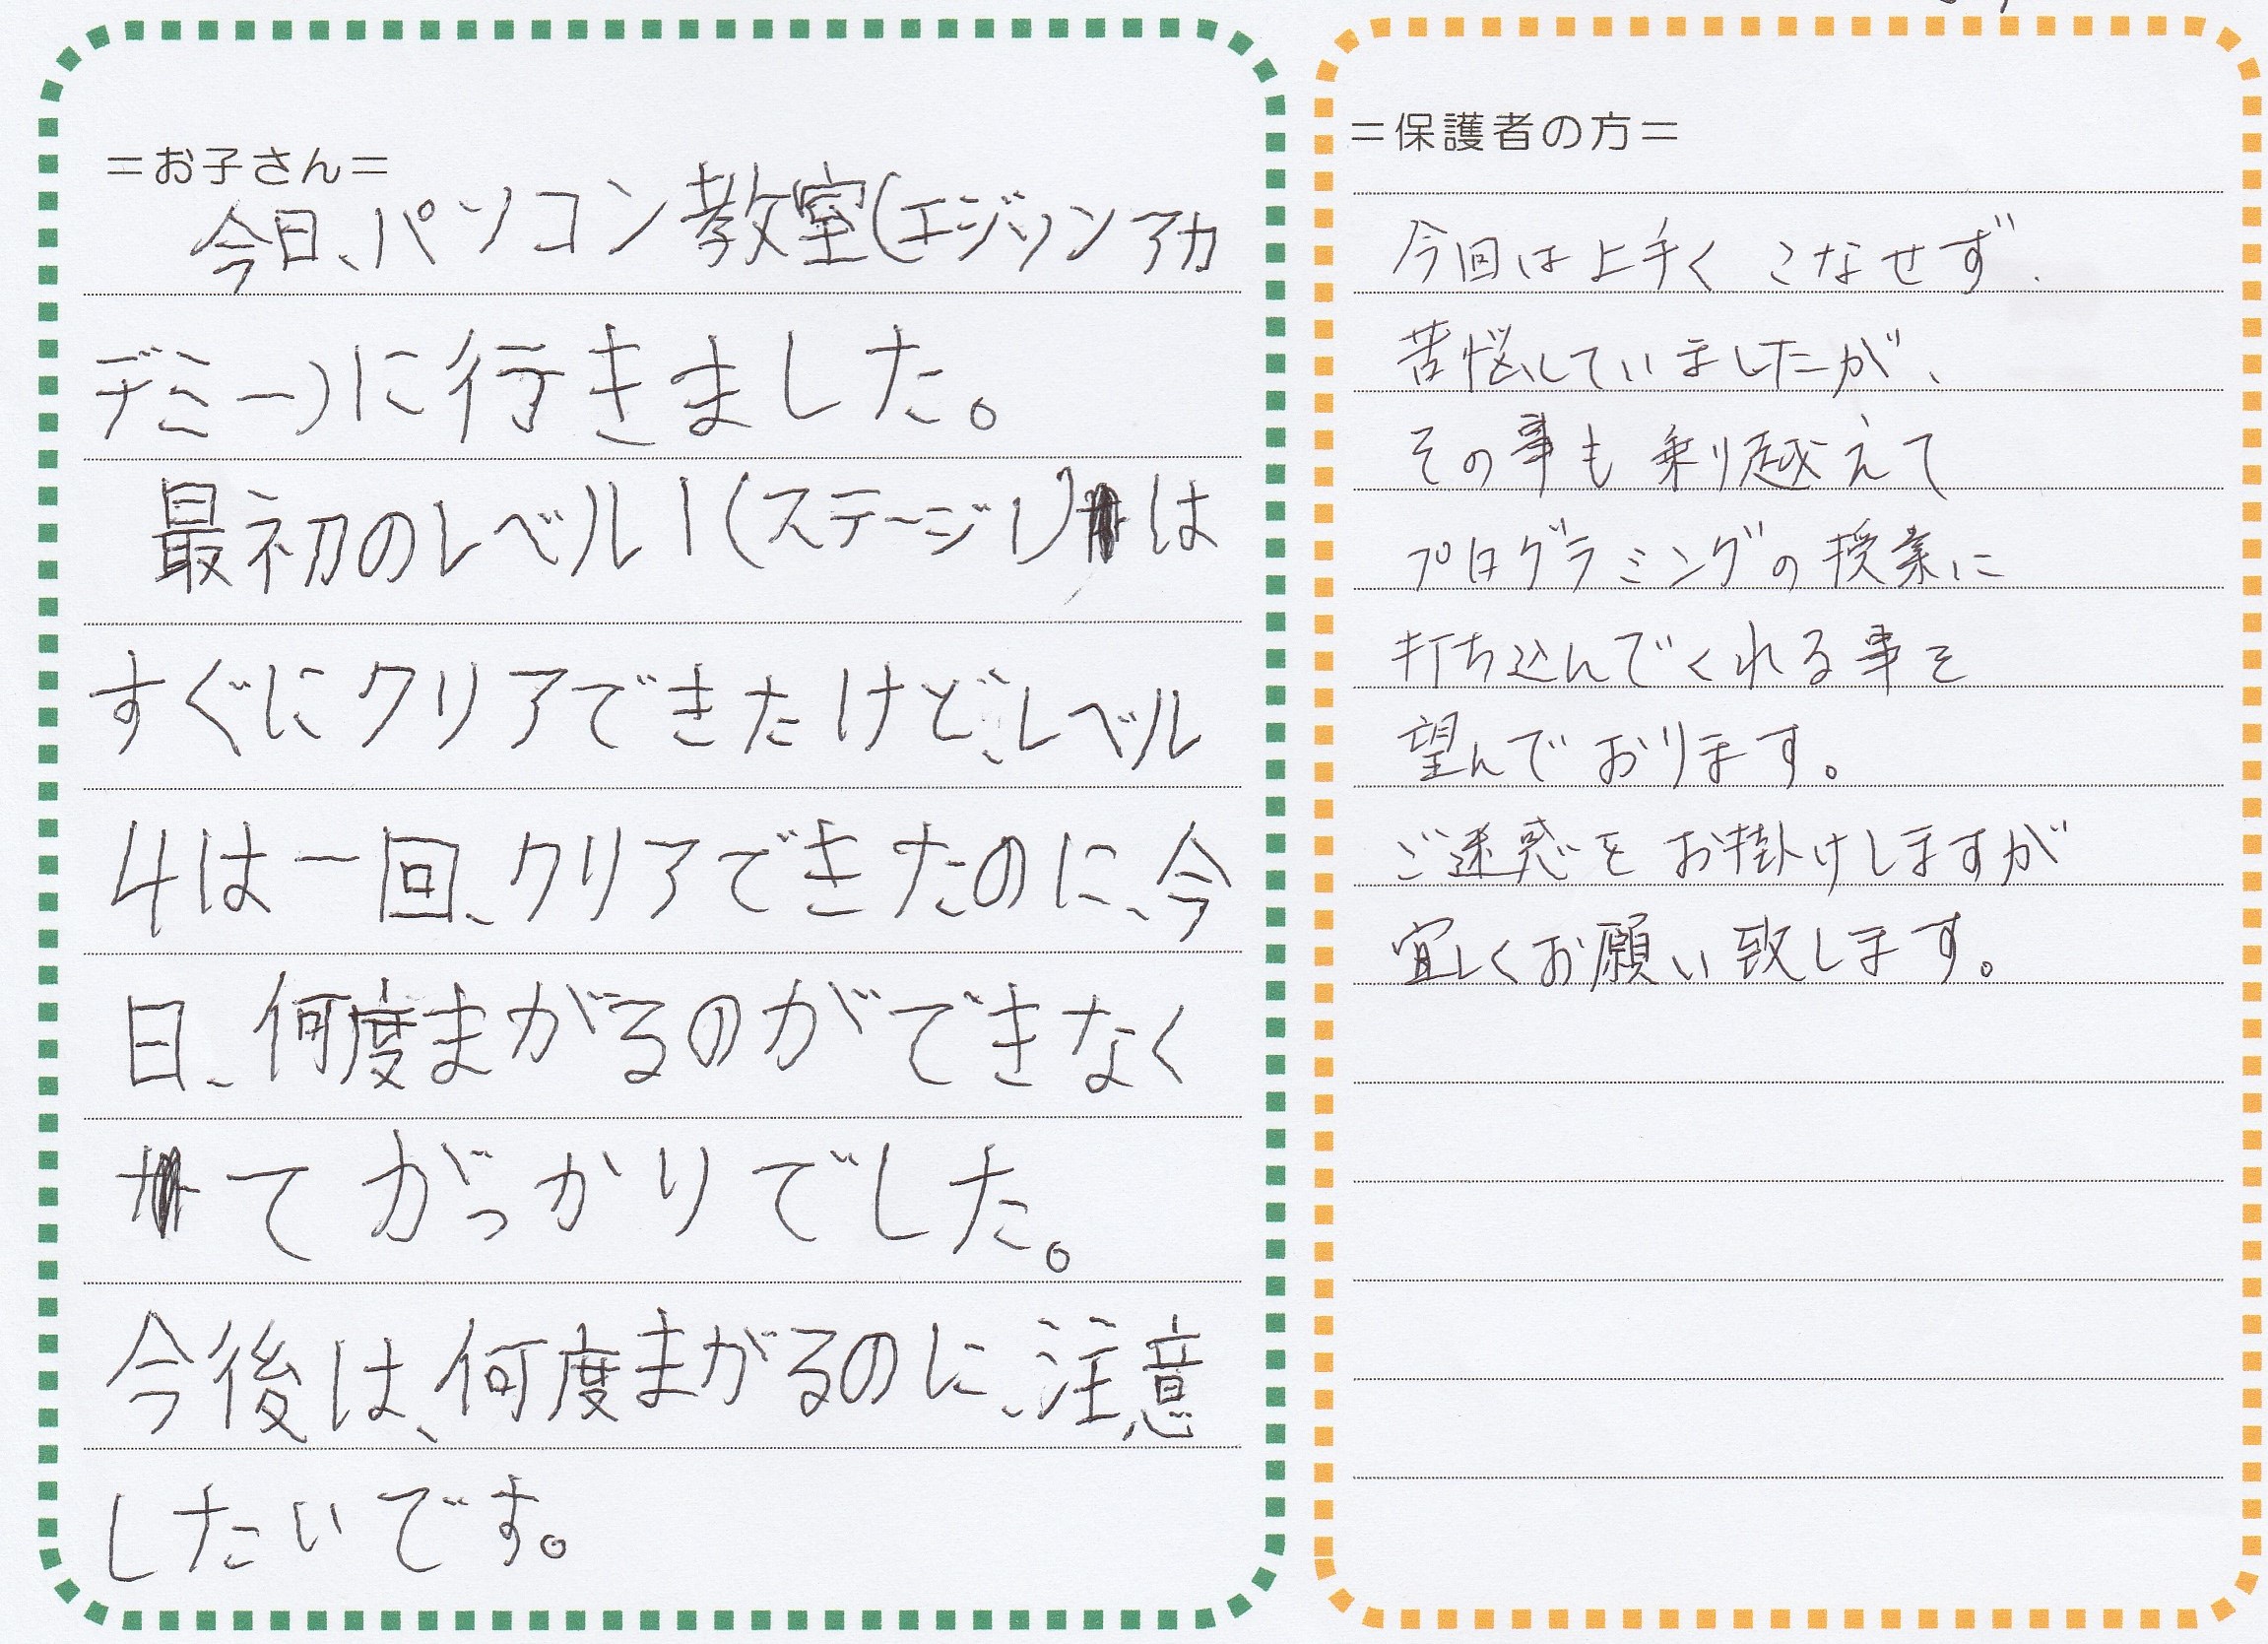 ＝お子さん＝
今日、パソコン教室(エジソンアカ
デミー)に行きました。
最初のレベル1(ステージ1)は
すぐにクリアできたけど、レベル
4は一回、クリアできたのに、今
日、何度まがるのができなく
てがっかりでした。
今後は、何度まがるのに、注意
したいです。
＝保護者の方＝
今回は上手くこなせず、
苦悩していましたが、
その事も乗り越えて
プログラミングの授業に
打ち込んでくれる事を
望んでおります。
ご迷惑をお掛けしますが
宜しくお願い致します。